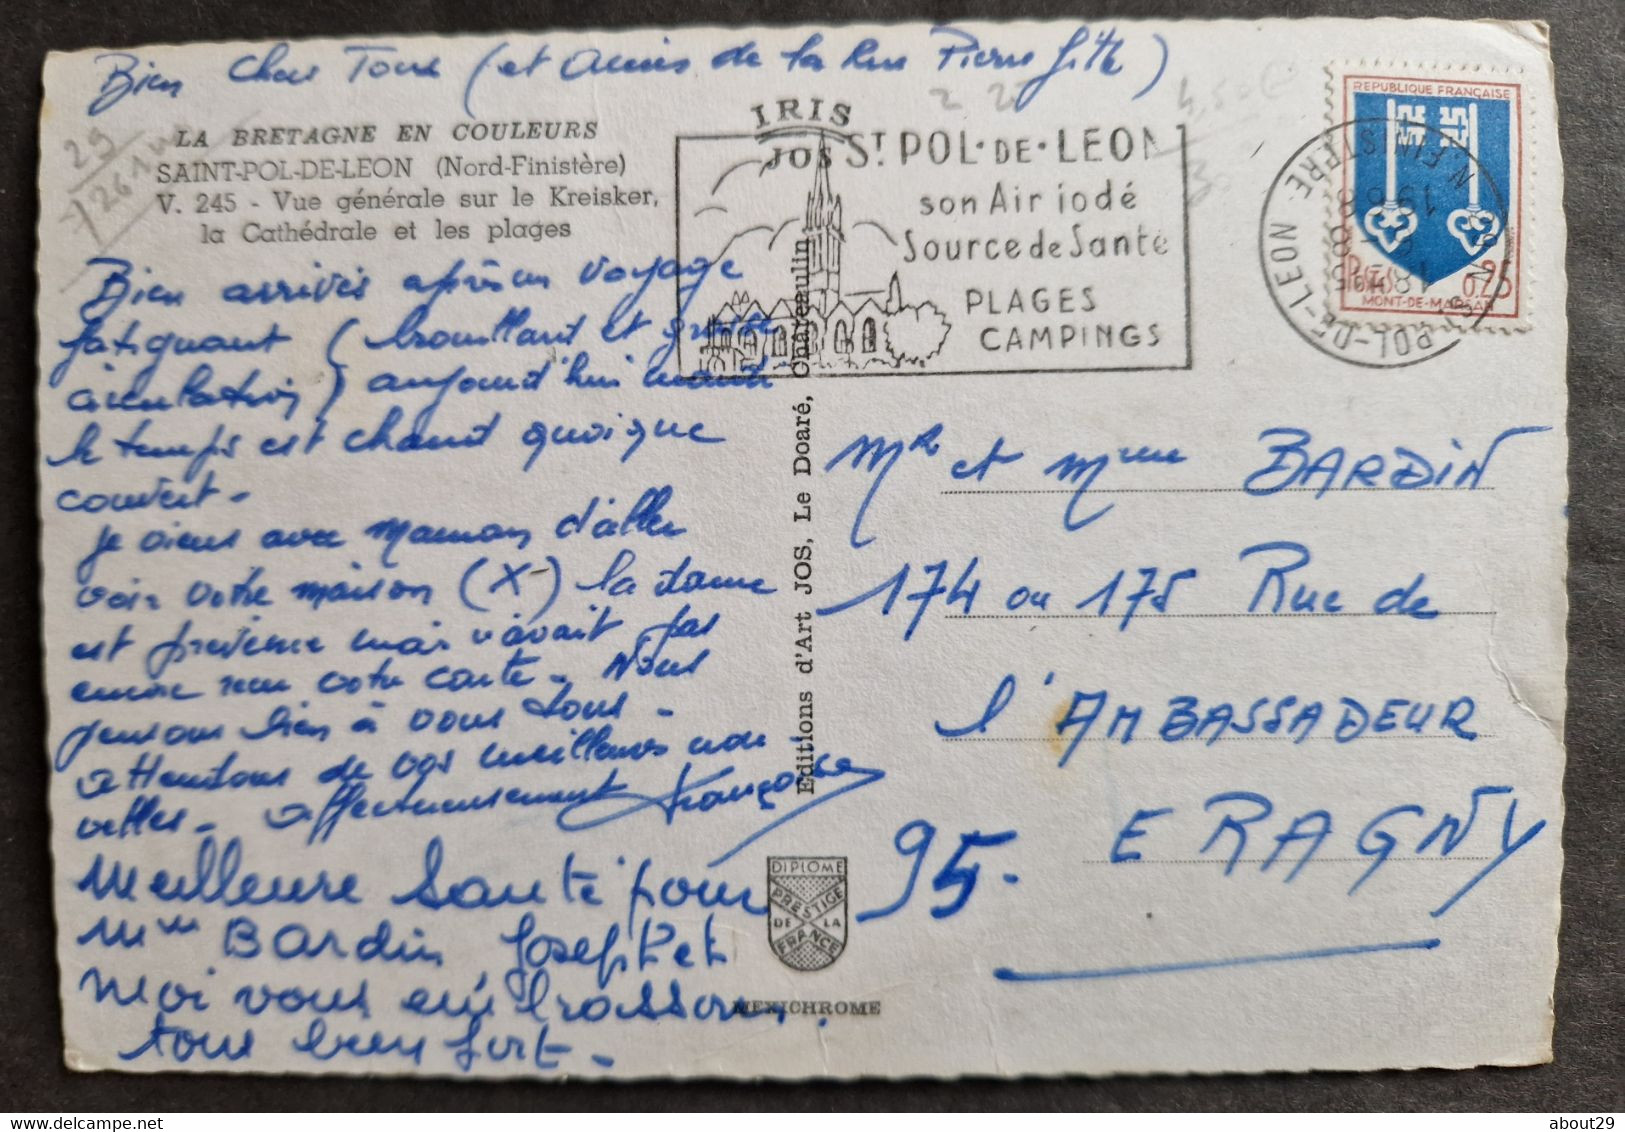 Bien Chers Tous (et Amis de la Rue Pierre
LA BRETAGNE EN COULEURS
SAINT-POL-DE-LEON (Nord-Finistère)
V. 245 - Vue générale sur le Kreisker,
la Cathédrale et les plages
Bien arrivés après un voyage
fatiguant (brouillard et grosse
circulation) aujourd'hui mardi
le temps est chaud quoique
couvert -
Je viens avec Maman d'aller
voir votre maison (X) la dame
est prévenue mais n'avait pas
encore reçu votre carte - Nous
pensons bien à vous tous -
Attendons de vos meilleures nou
velles - Affectueusement Françoise
Meilleure Santé pour
Mme BARDIN Joseph et
moi vous embrassons
tous bien fort -
IRIS
JOS
ST POL•DE•LEON
son Air iodé
Source de Santé
PLAGES
CAMPINGS
ST POL-DE-LEON
N. FINISTERE
18H15
8-8
1968
REPUBLIQUE FRANÇAISE
POSTES
0,25
MONT-DE-MARSAN
Editions d'Art JOS, Le Doaré, Châteaulin
Mr et Mme BARDIN
174 ou 175 Rue de
l'AMBASSADEUR
ERAGNY
95-
DIPLOME
PRESTIGE
DE LA
FRANCE
MEXICHROME
about29